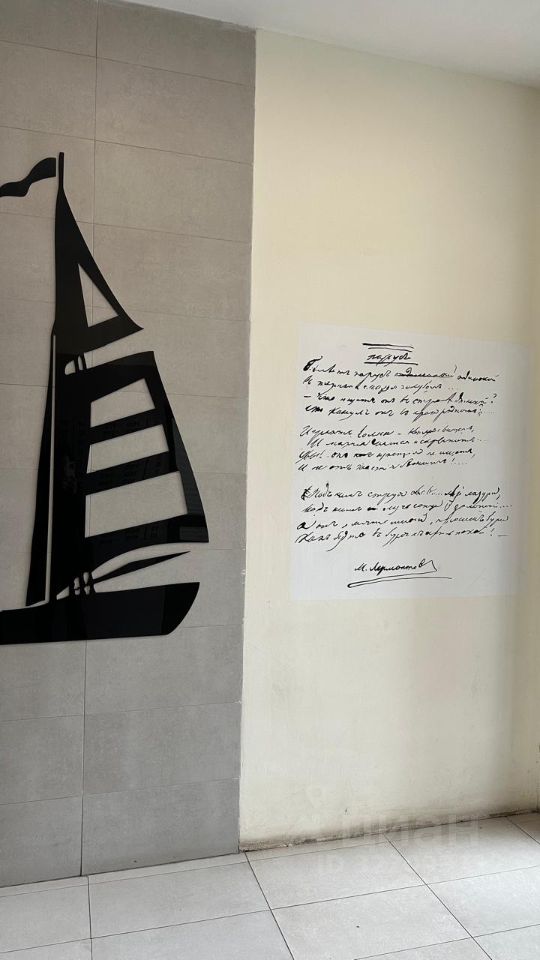 парусъ
Бѣлѣетъ парусъ одинокой
Въ туманѣ моря голубомъ...
– Что ищетъ онъ въ странѣ далекой?
Что кинулъ онъ въ краю родномъ?...
Играютъ волны – вѣтеръ свищетъ,
И мачта гнется и скрыпитъ...
Увы! онъ счастія не ищетъ
И не отъ счастія бѣжитъ!...
Подъ нимъ струя свѣтлѣй лазури,
Надъ нимъ лучъ солнца золотой...
А онъ, мятежный, проситъ бури,
Какъ будто въ буряхъ есть покой! –
М. Лермонтов
циан